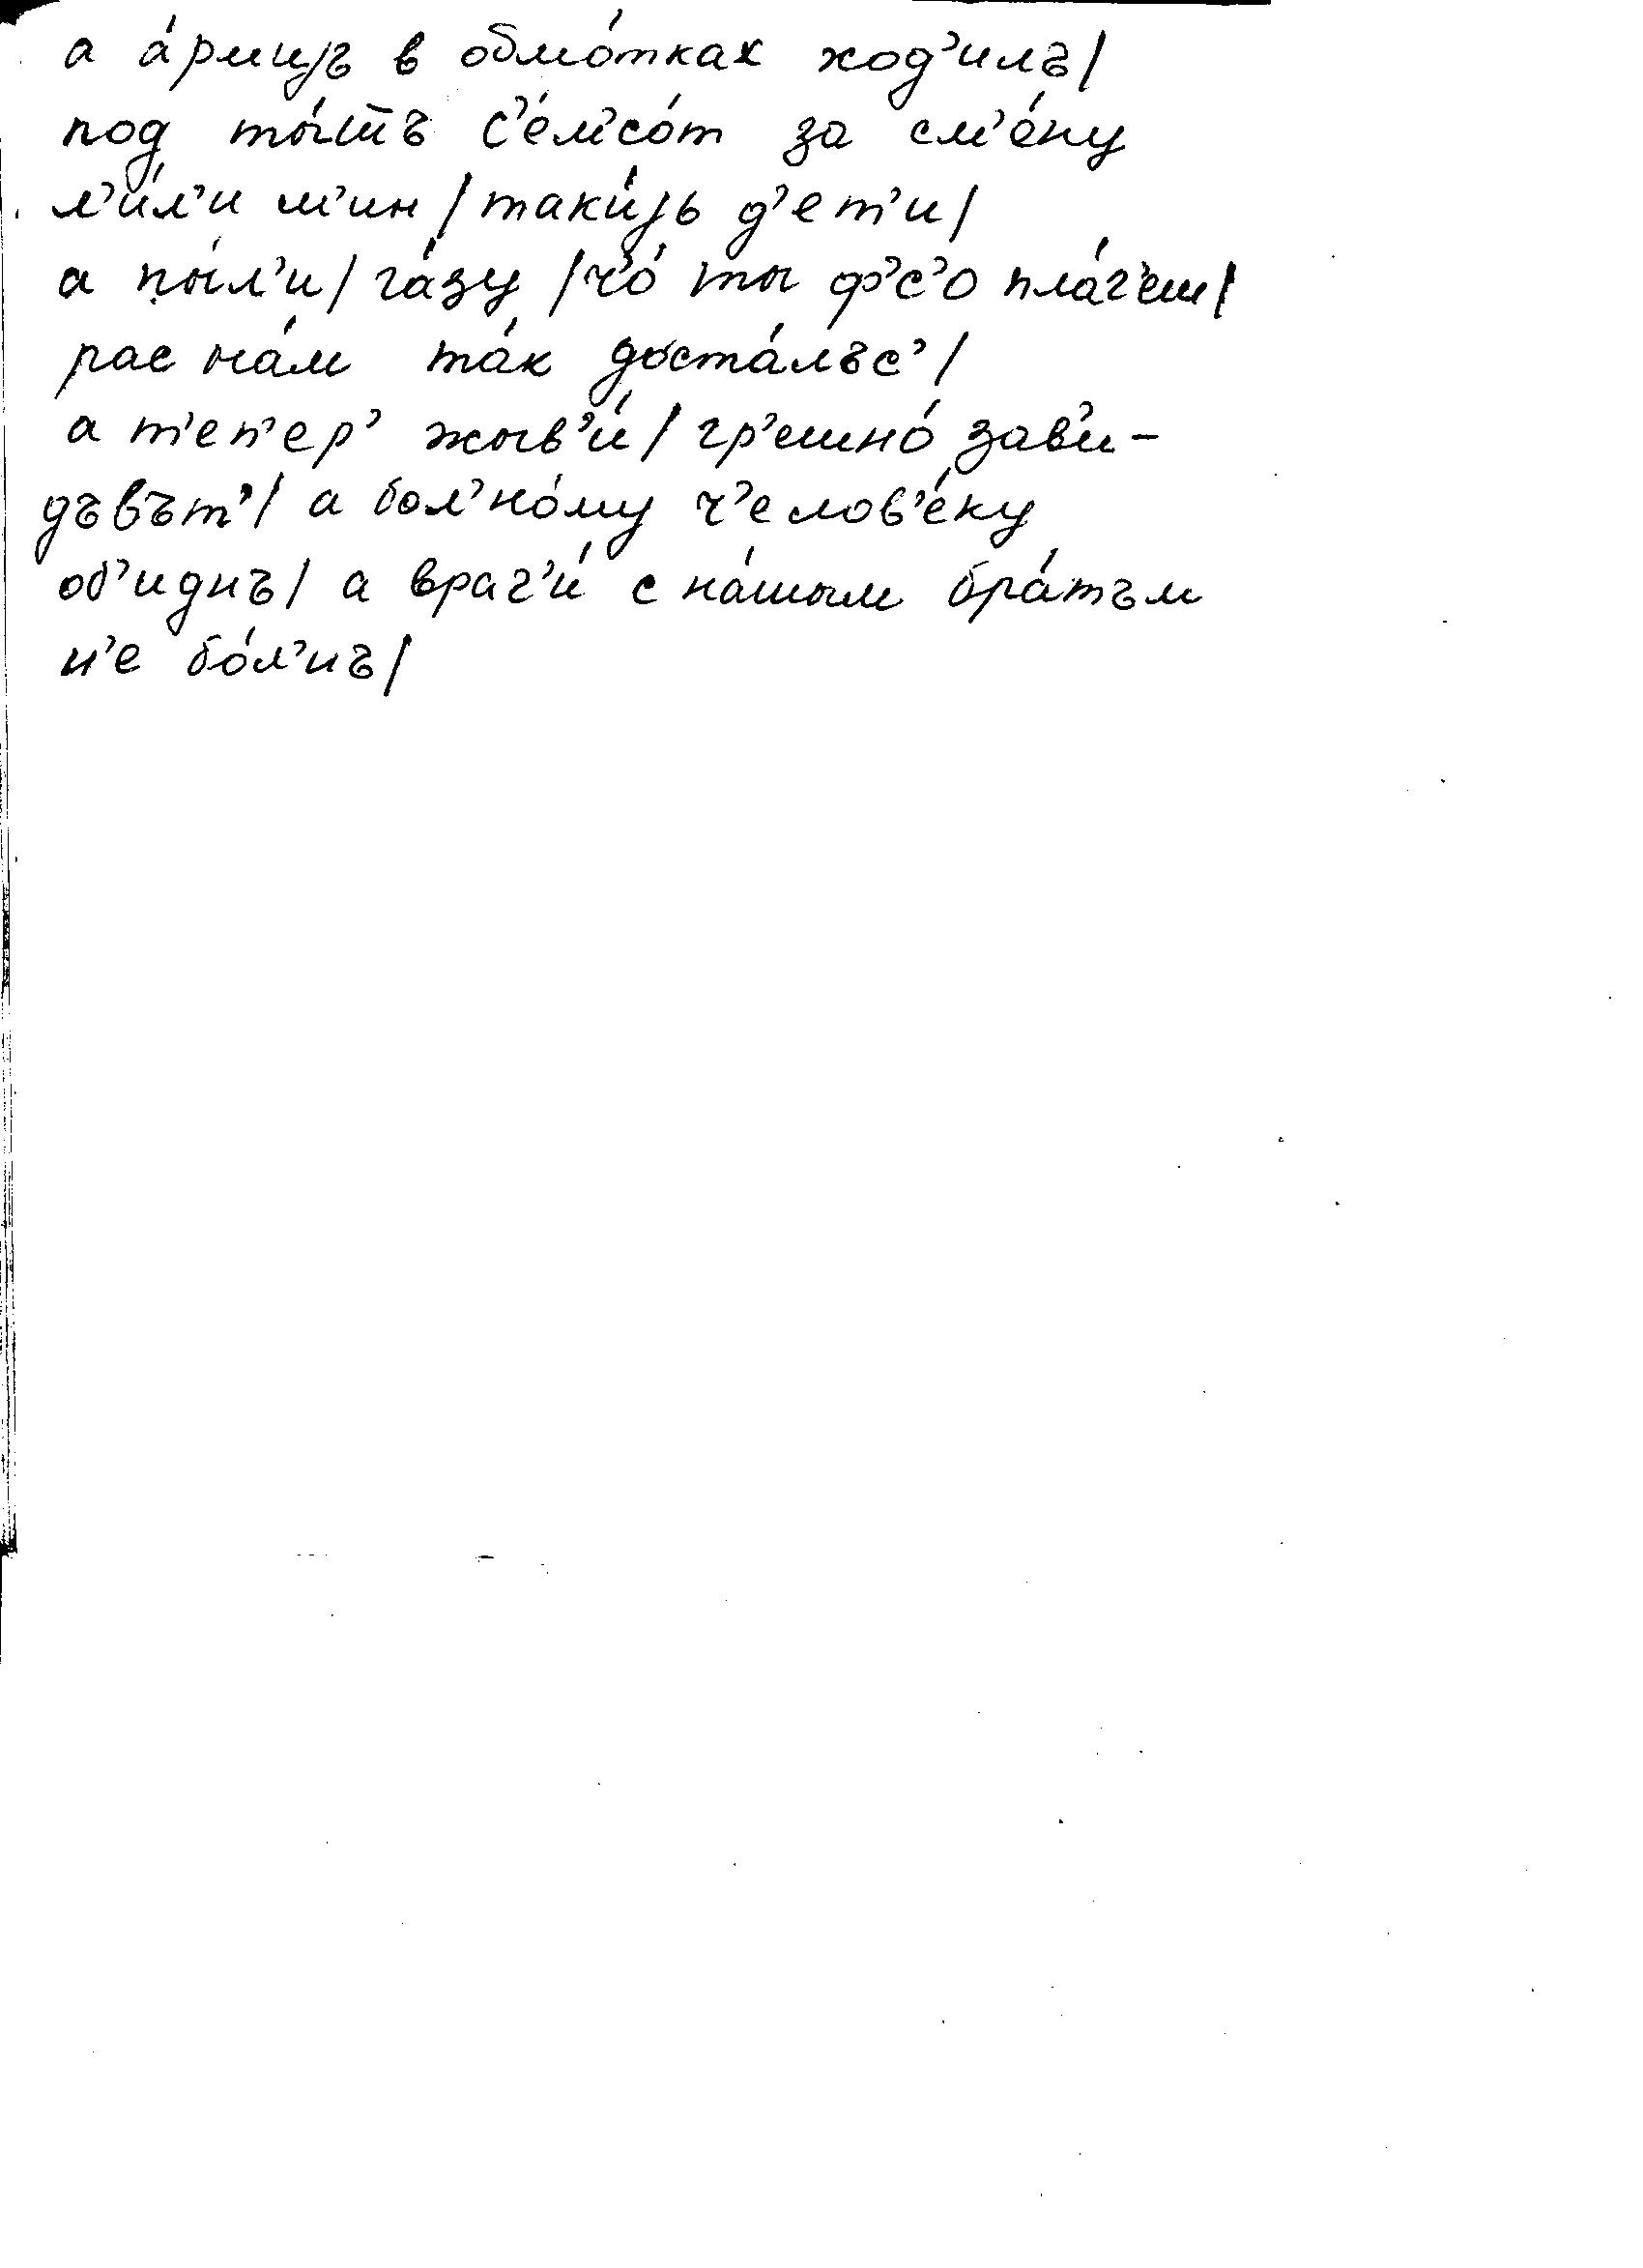 а а́рмиjъ в обмо́тках ход’илъ/
под ты́щъ с’е́м’со́т за см’е́ну
л’и́л’и м’ин/таки́jь д’ет’и/
а пы́л’и/га́зу/ч’о́ ты ф’с’о пла́ч’еш/
рас на́м та́к доста́лъс’/
а т’еп’ер’ жыв’и́/гр’ешно́ зав’и-
дъвът’/ а бол’но́му ч’елов’е́ку
об’иднъ/ а враг’и́ с на́шым бра́тъм
н’е бо́л’иъ/